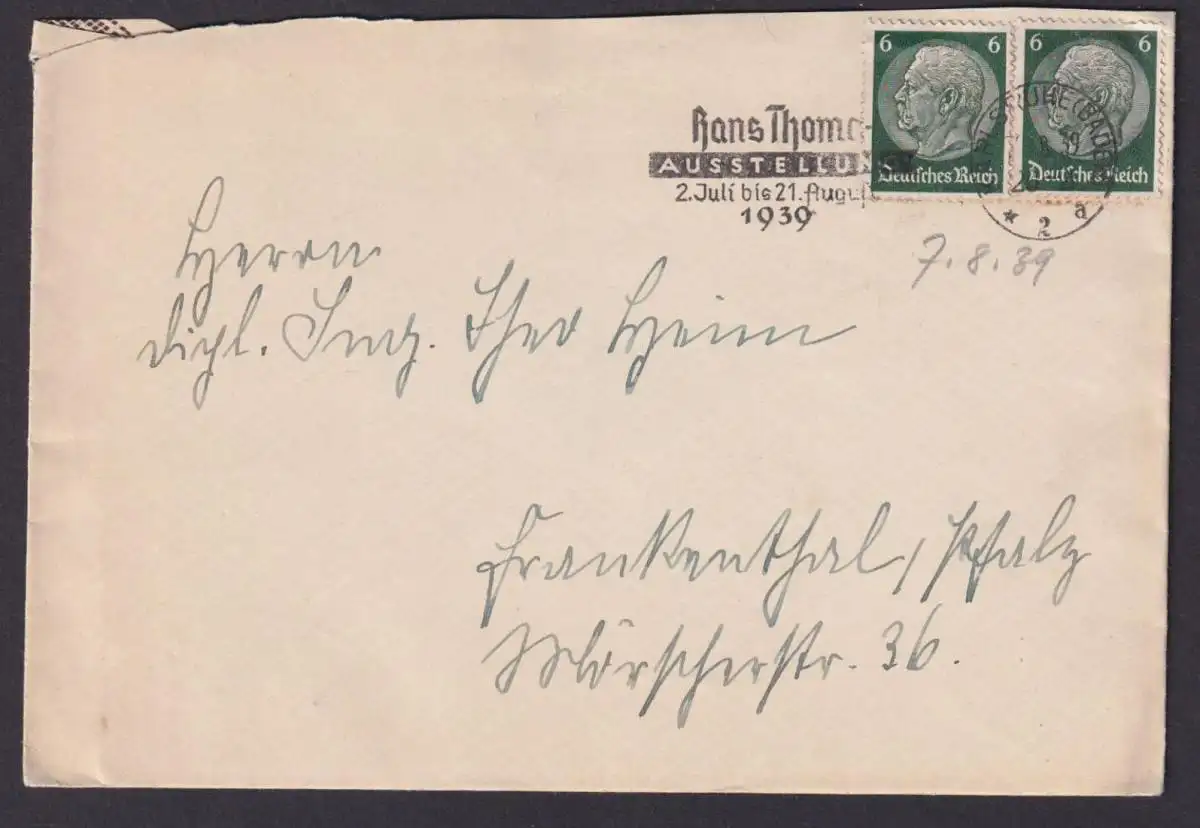 6 6 6 6
Hans Thoma
AUSSTELLUNG
2. Juli bis 21. August
1939
Deutsches Reich Deutsches Reich
KARLSRUHE (BADEN)
8.39
20
* 2 a
7.8.39
Herrn
Dipl. Ing. Theo Heim
Frankenthal / Pfalz
Mörscherstr. 36.